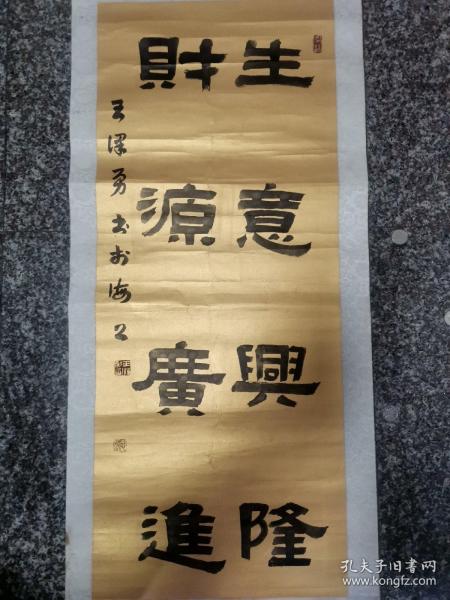 生意興隆
財源廣進
王澤勇书於海上
孔夫子旧书网
www.kongfz.com